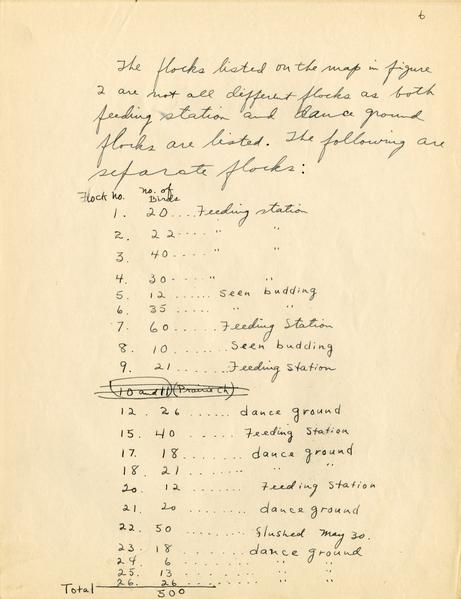 6
The flocks listed on the map in figure
2 are not all different flocks as both
feeding station and dance ground
flocks are listed. The following are
separate flocks:
Flock No. No. of Birds
1. 20.... Feeding station
2. 22.... " "
3. 40.... " "
4. 30.... " "
5. 12...... Seen budding
6. 35...... " "
7. 60...... Feeding Station
8. 10...... Seen budding
9. 21...... Feeding Station
10 and 11 (Prairie ch)
12. 26...... dance ground
15. 40...... Feeding Station
17. 18....... dance ground
18. 21....... " "
20. 12....... Feeding Station
21. 20....... dance ground
22. 50....... flushed May 30.
23. 18....... dance ground
24. 6....... " "
25. 13....... " "
26. 26....... " "
Total 500